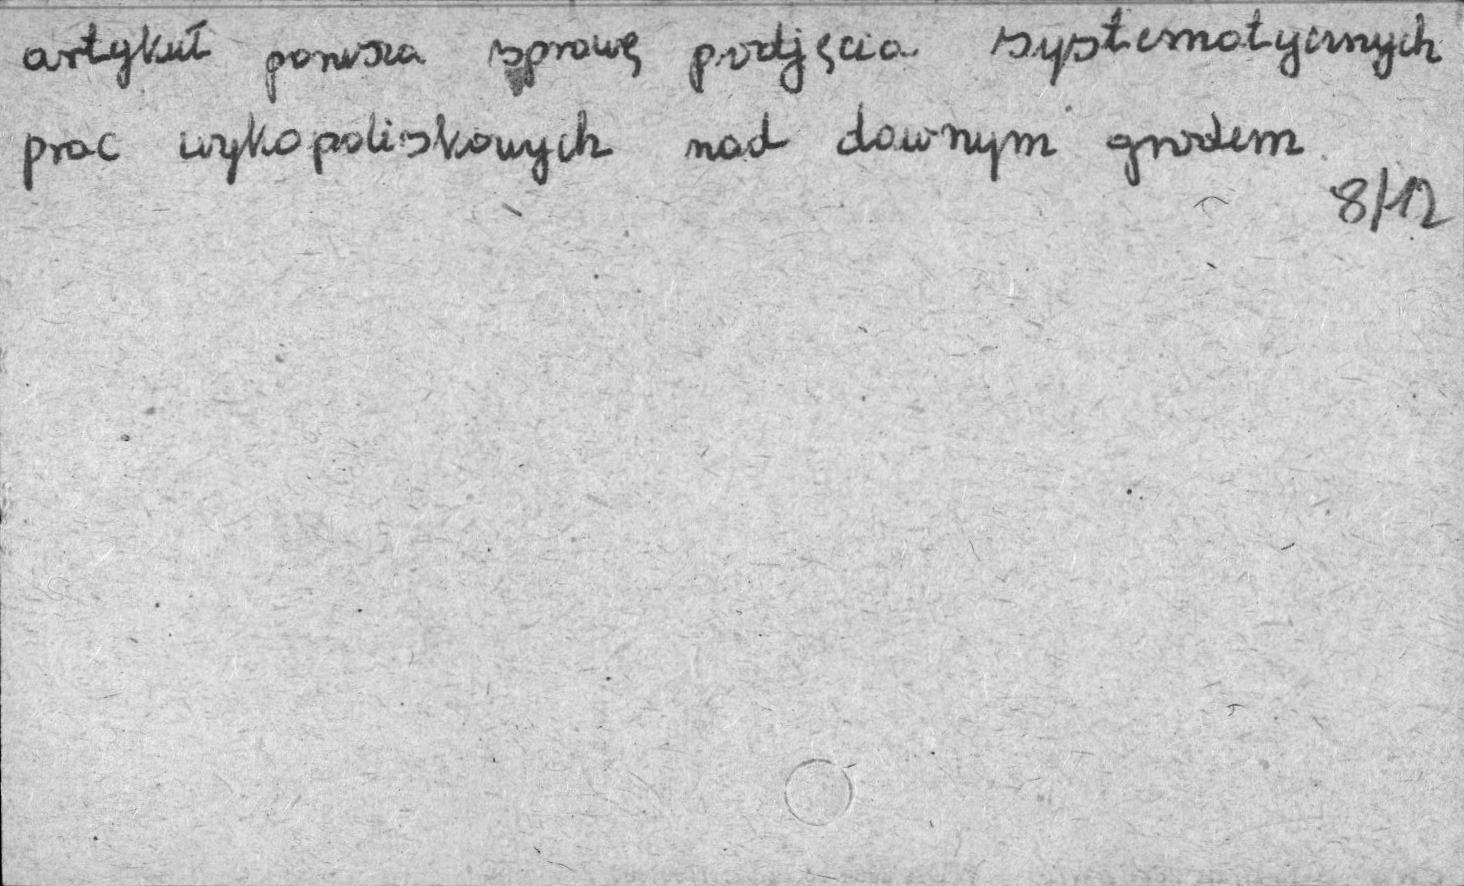 artykuł porusza sprawę podjęcia systematycznych
prac wykopaliskowych nad dawnym grodem.
8/12